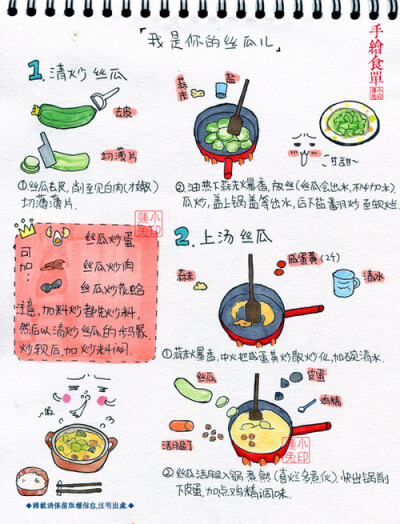 「我是你的丝瓜儿」
手繪食單
1. 清炒丝瓜
去皮
切薄片
①丝瓜去皮,刮至见白肉(才嫩)
切薄薄片.
蒜末
盐
甘甜~
②油热下蒜末火爆香,放丝(丝瓜会出水,不必加水).
瓜炒,盖上锅盖等出水,后下盐翻炒至软烂.
可加:
丝瓜炒蛋
丝瓜炒肉
丝瓜炒花蛤
注意,加料炒都先炒料,
然后以清炒丝瓜的步骤,
炒软后,加炒料焖.
2. 上汤丝瓜
蒜末
咸蛋黄(2个)
清水
①蒜末爆香,中火把咸蛋黄炒散炒化,加碗清水.
丝瓜
皮蛋
鸡精
②丝瓜
入锅煮熟
快出锅前
下皮蛋,加点鸡精调味.
◆轉載請保留版權信息,注明出處◆